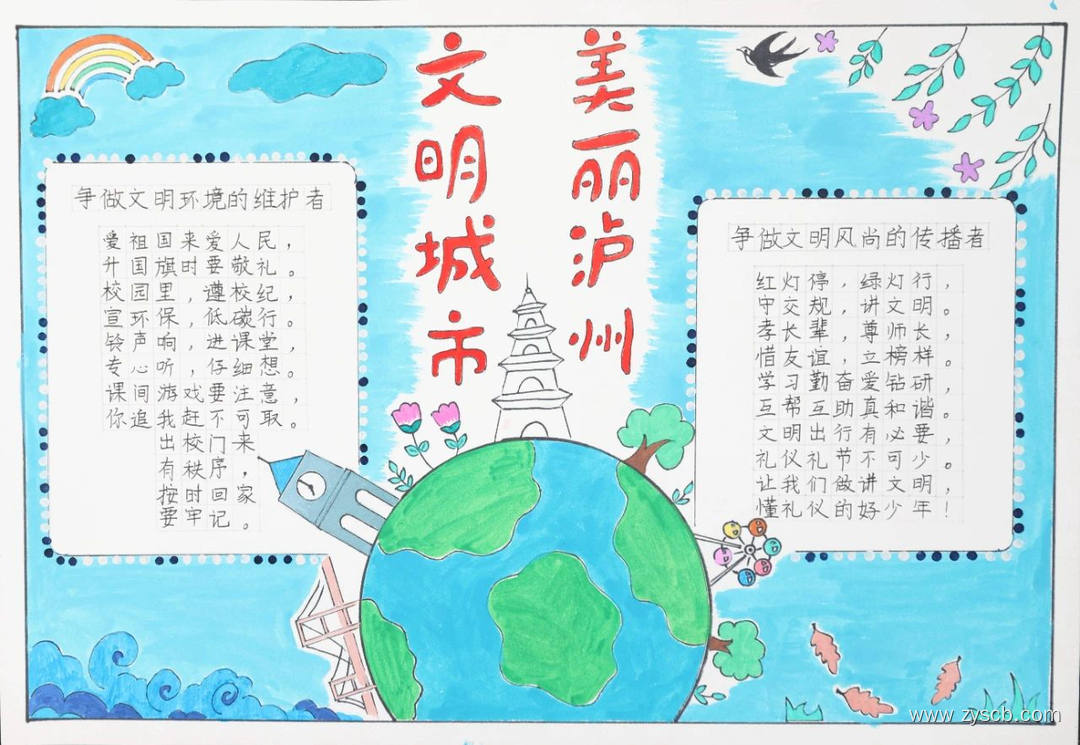 美丽泸州
文明城市
争做文明环境的维护者
爱祖国来爱人民，
升国旗时要敬礼。
校园里，遵校纪，
宣环保，低碳行。
铃声响，进课堂，
专心听，仔细想。
课间游戏要注意，
你追我赶不可取。
出校门来
有秩序，
按时回家
要牢记。
争做文明风尚的传播者
红灯停，绿灯行，
守交规，讲文明。
孝长辈，尊师长，
惜友谊，立榜样。
学习勤奋爱钻研，
互帮互助真和谐。
文明出行有必要，
礼仪礼节不可少。
让我们做讲文明，
懂礼仪的好少年！
www.zyscb.com